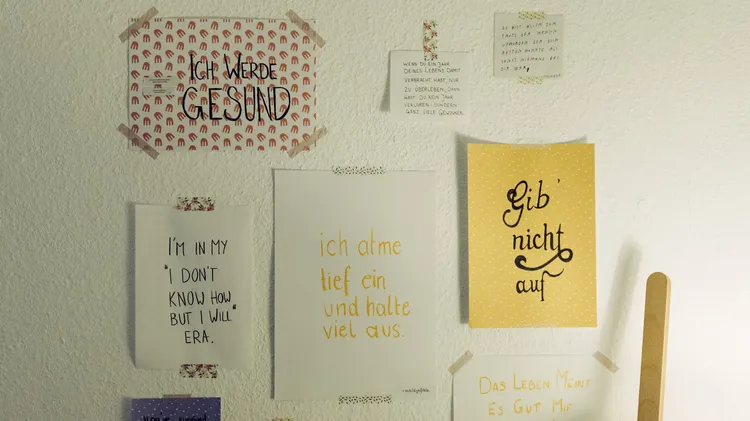 ICH WERDE
GESUND
WENN DU EIN JAHR
DEINES LEBENS DAMIT
VERBRACHT HAST, NUR
ZU ÜBERLEBEN, DANN
HAST DU KEIN JAHR
VERLOREN - SONDERN
GANZ VIELE GEWONNEN.
DU BIST ALLEM ZUM
I'M IN MY
"I DON'T
KNOW HOW
BUT I WILL"
ERA.
ich atme
tief ein
und halte
viel aus.
Gib'
nicht
auf
DAS LEBEN MEINT
ES GUT MIT